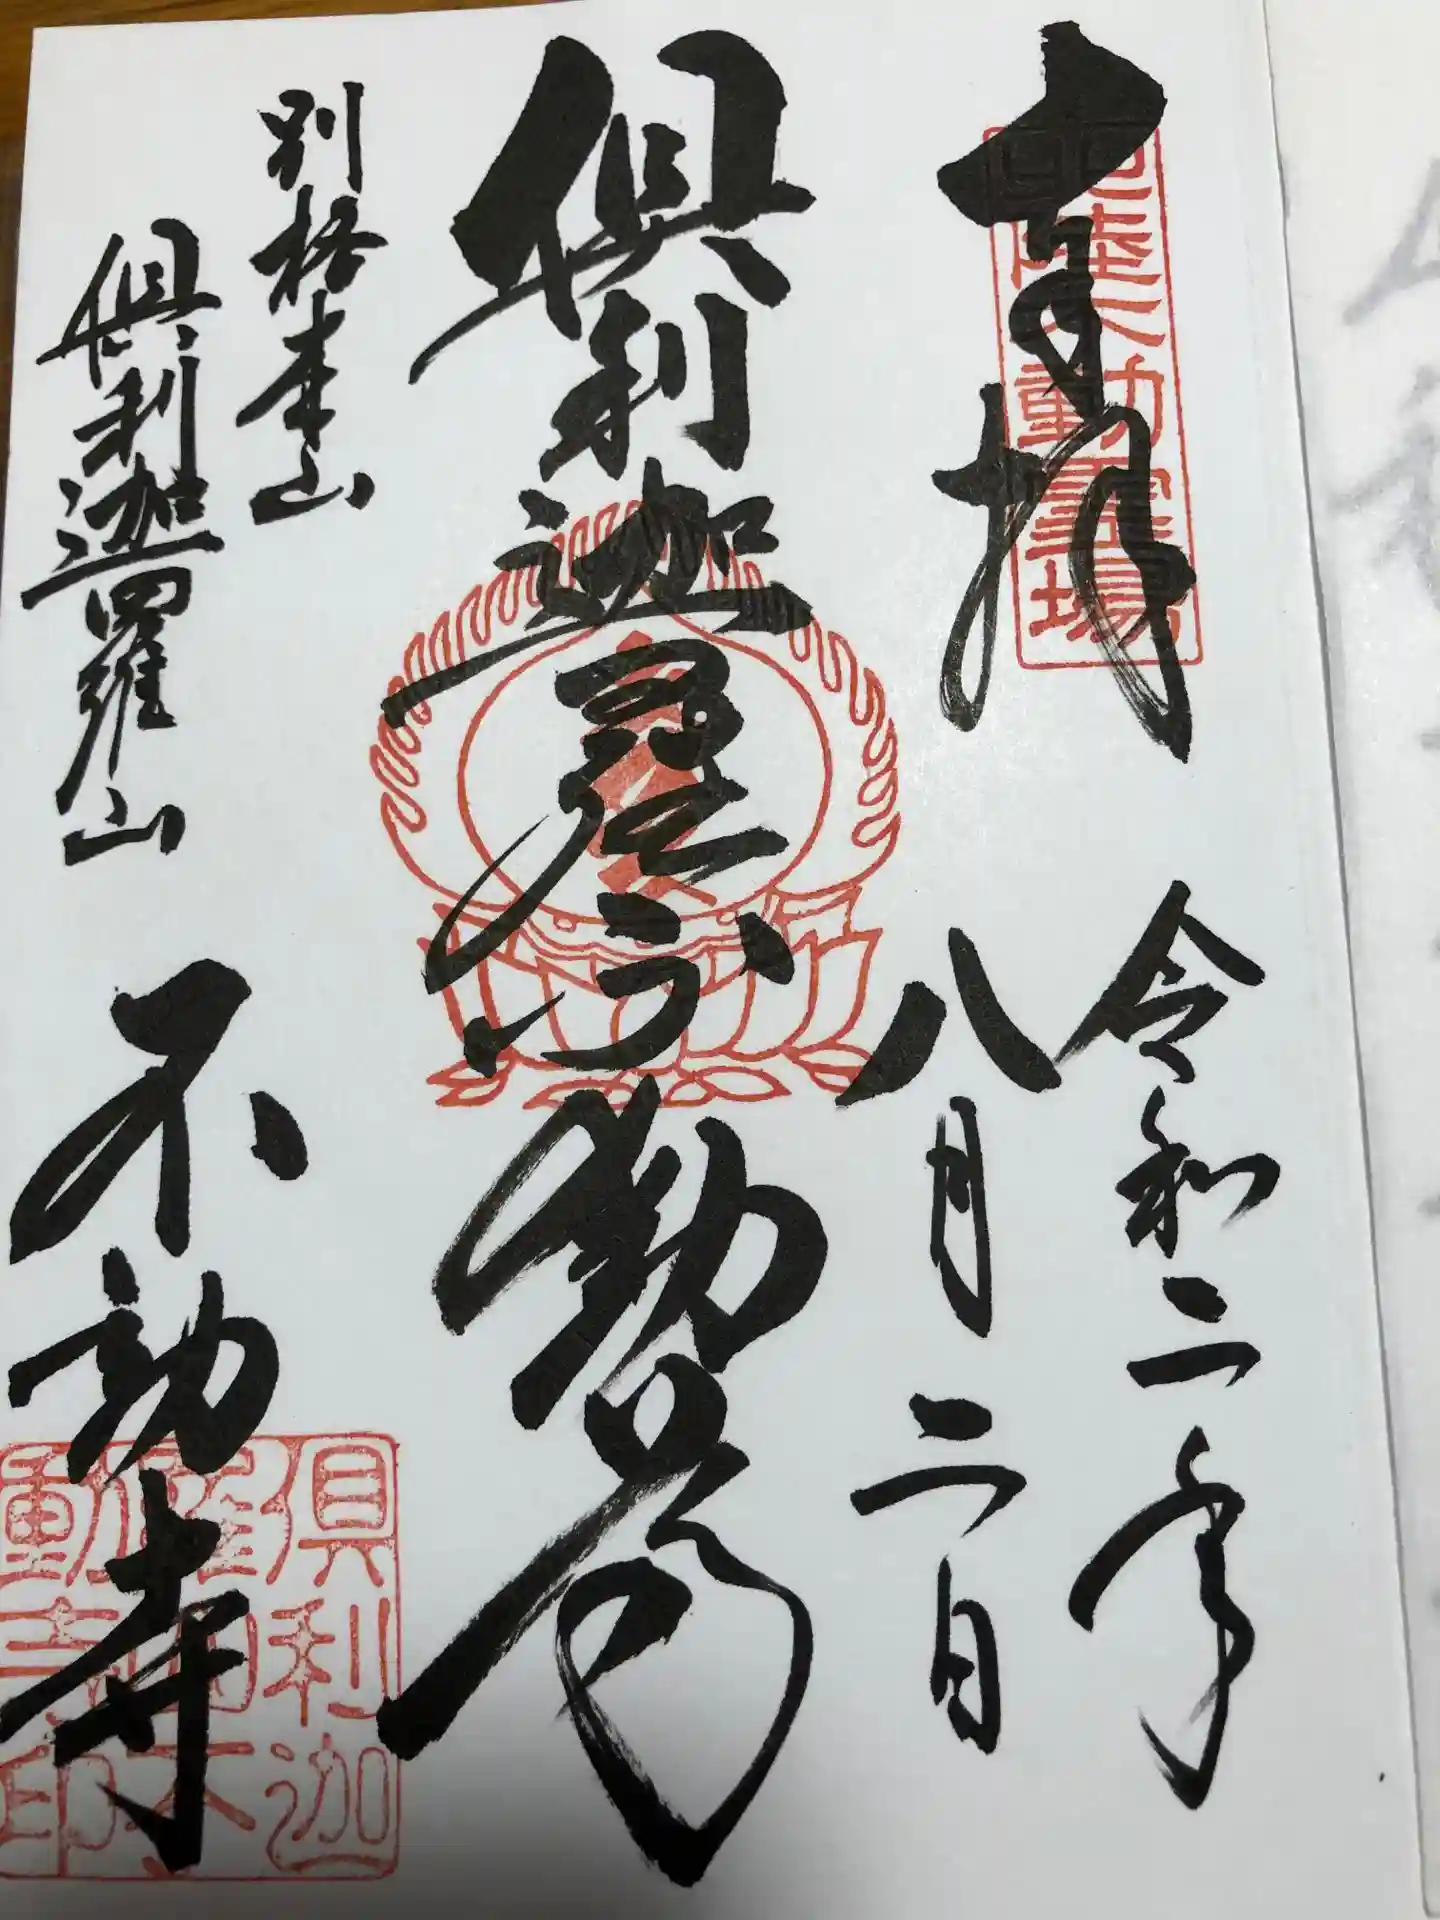 奉拝
令和二年
八月二日
倶利迦羅不動尊
別格本山
倶利迦羅山
不動寺
北陸不動霊場
倶利迦
羅山不
動寺印